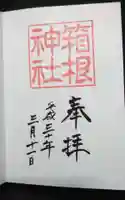 奉拝
箱根
神社
平成三十年
三月十一日